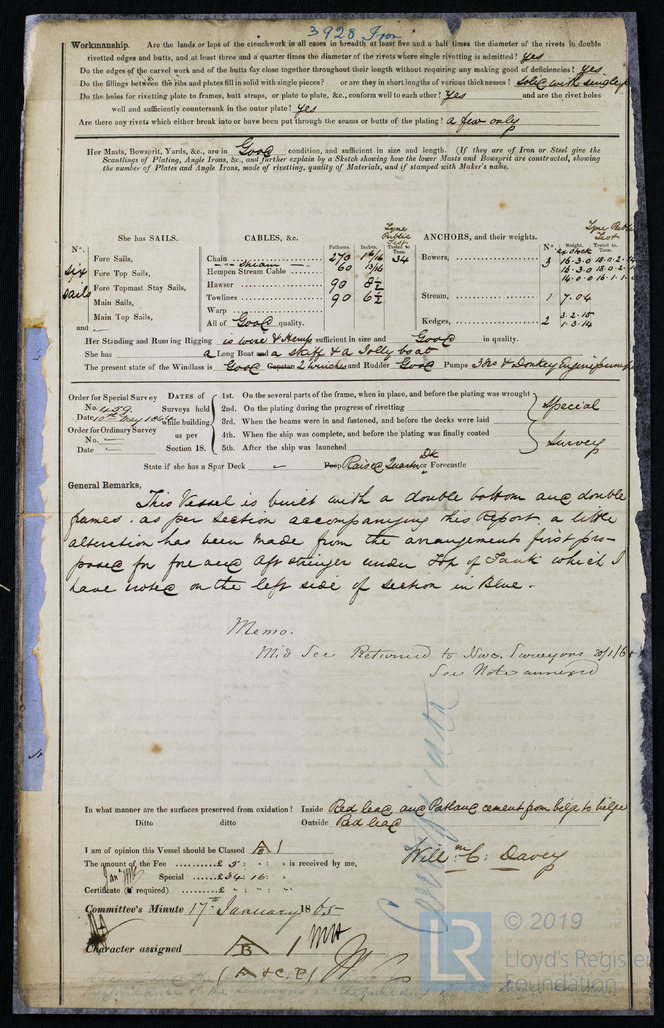 3928 Iron
Workmanship. Are the lands or laps of the clenchwork in all cases in breadth at least five and a half times the diameter of the rivets in double
rivetted edges and butts, and at least three and a quarter times the diameter of the rivets where single rivetting is admitted? yes
Do the edges of the carvel work and of the butts fay close together throughout their length without requiring any making good of deficiencies? yes
Do the fillings between the ribs and plates fill in solid with single pieces? or are they in short lengths of various thicknesses? solid with single p
Do the holes for rivetting plate to frames, butt straps, or plate to plate, &c., conform well to each other? yes and are the rivet holes
well and sufficiently countersunk in the outer plate? yes
Are there any rivets which either break into or have been put through the seams or butts of the plating? a few only
Her Masts, Bowsprit, Yards, &c., are in Good condition, and sufficient in size and length. (If they are of Iron or Steel give the
Scantlings of Plating, Angle Irons, &c., and further explain by a Sketch showing how the lower Masts and Bowsprit are constructed, showing
the number of Plates and Angle Irons, mode of rivetting, quality of Materials, and if stamped with Maker's name.
She has SAILS. CABLES, &c. Fathoms. Inches. Tyne Public Test Tested to Tons. ANCHORS, and their weights. Nº. Weight. ex Stock Tyne Public Test Tested to Tons.
Nº.
Six Sails
Fore Sails, Chain 270 1 6/16 34 Bowers, 3 16.3.0
" Stream 60 13/16 16.3.0
Fore Top Sails, Hempen Stream Cable 14.0.0
Fore Topmast Stay Sails, Hawser 90 8½
Main Sails, Towlines 90 6½ Stream, 1 7.0.4
Main Top Sails, Warp
and All of Good quality. Kedges, 2 3.2.15
1.3.14
Her Standing and Running Rigging is wire & Hemp sufficient in size and Good in quality.
She has a Long Boat and a skiff & a Jolly boat
The present state of the Windlass is Good Capstan 2 winches and Rudder Good Pumps 3 Nos & Donkey Engine pump
Order for Special Survey
No. 459
Date 10th May 1864
Order for Ordinary Survey
No. —
Date —
DATES of Surveys held while building as per Section 18.
1st. On the several parts of the frame, when in place, and before the plating was wrought
2nd. On the plating during the progress of rivetting
3rd. When the beams were in and fastened, and before the decks were laid
4th. When the ship was complete, and before the plating was finally coated
5th. After the ship was launched
Special
Survey
State if she has a Spar Deck — Poop Raised Quarter Dk or Forecastle
General Remarks,
This Vessel is built with a double bottom and double
frames. as per section accompanying this Report a little
alteration has been made from the arrangements first pro-
posed for fore and aft stringer under Top of Tank which I
have noted on the left side of section in Blue.
Memo.
Mid Sec Returned to Nwc. Surveyors 20/1/65
See Note annexed
In what manner are the surfaces preserved from oxidation? Inside Red lead and Portland cement from bilge to bilge
Ditto ditto Outside Red lead
I am of opinion this Vessel should be Classed A/B 1
The amount of the Fee ..........£ 5 : " : " is received by me,
Special ......£34 : 16 : "
Certificate (if required) .......£ " : " : "
Willm. C. Davey
Committee's Minute 17th January 1865
Character assigned A/B 1
(A & C.P.)
Certificate
LR
© 2019
Lloyd's Register
Foundation